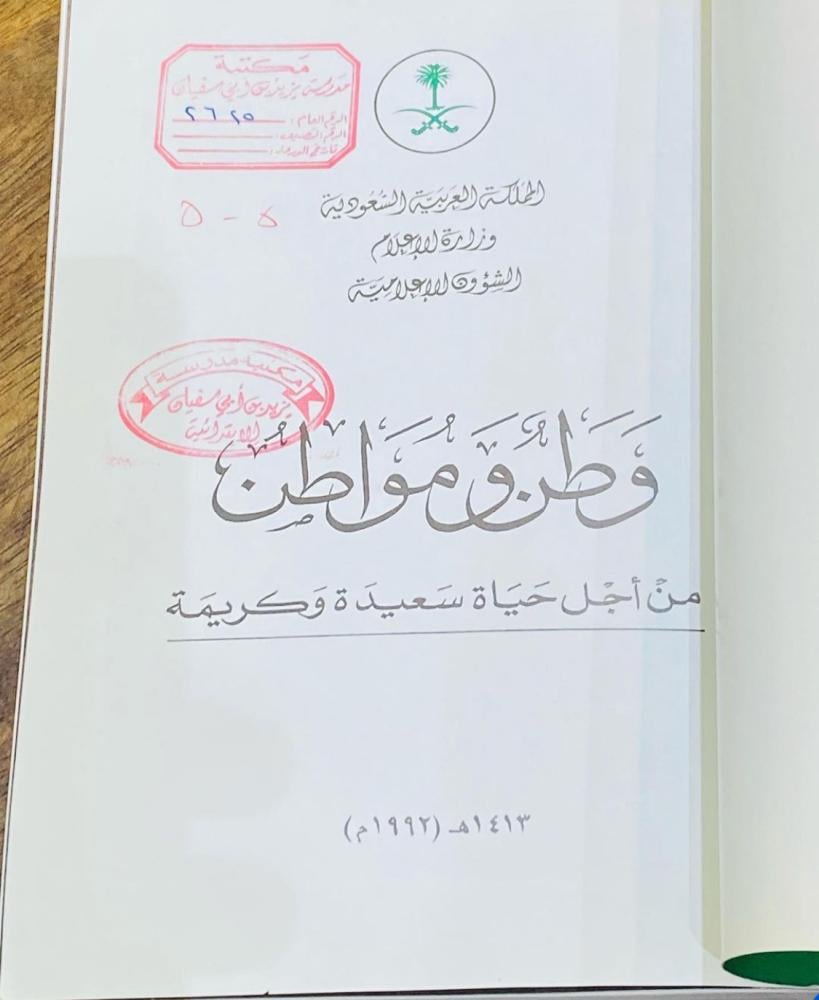 مكتبة
مدرسة يزيد بن أبي سفيان
الرقم العام: ٢٦٢٥
الرقم التصنيف:
تاريخ الورود:
المملكة العربية السعودية
وزارة الإعلام
الشؤون الإعلامية
مكتبة مدرسة
يزيد بن أبي سفيان
الابتدائية
وَطَنٌ وَمُوَاطِنٌ
منْ أجْل حَيَاة سَعيدَة وَكريمَة
١٤١٣هـ (١٩٩٢م)